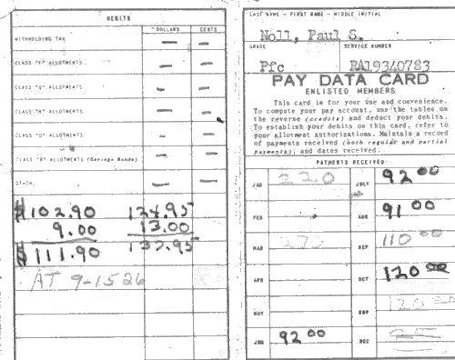 DEBITS
DOLLARS CENTS
WITHHOLDING TAX
CLASS "E" ALLOTMENTS
CLASS ALLOTMENTS
CLASS "N" ALLOTMENTS
CLASS ALLOTMENTS
CLASS ALLOTMENTS (Savings Bonds)
OTHER
$102.90 124.95
9.00 13.00
$111.90 137.95
AT 9-15
LAST NAME - FIRST NAME - MIDDLE INITIAL
Noll, Paul S.
GRADE SERVICE NUMBER
Pfc RA19340783
PAY DATA CARD
ENLISTED MEMBERS
This card is for your use and convenience.
To compute your pay account, use the tables on
the reverse (credits) and deduct your debits.
To establish your debits on this card, refer to
your allotment authorizations. Maintain a record
of payments received (both regular and partial
payments), and dates received.
PAYMENTS RECEIVED
JAN 220 JULY 92 00
FEB AUG 91 00
MAR SEP 110 00
APR OCT 120 00
MAY NOV 120
JUN 92 00 DEC 25